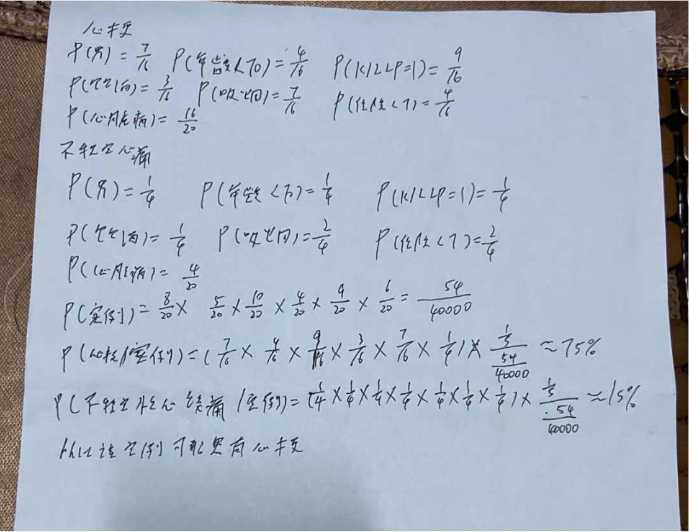 心梗
P(男)=7/16 P(年龄<70)=4/16 P(KILLP=1)=9/16
P(饮酒)=3/16 P(吸烟)=7/16 P(住院<7)=4/16
P(心脏病)=16/20
不稳定心痛
P(男)=1/4 P(年龄<70)=1/4 P(KILLP=1)=1/4
P(饮酒)=1/4 P(吸烟)=2/4 P(住院<7)=2/4
P(心脏病)=4/20
P(案例)=8/20×5/20×10/20×4/20×9/20×6/20=54/40000
P(心梗/案例)=(7/16×4/16×9/16×3/16×7/16×1/4)× /(54/40000)≈75%
P(不稳定性心绞痛/案例)=(1/4×1/4×1/4×1/4×1/4×1/4×1/4)× /(54/40000)≈15%
所以该案例可能患有心梗